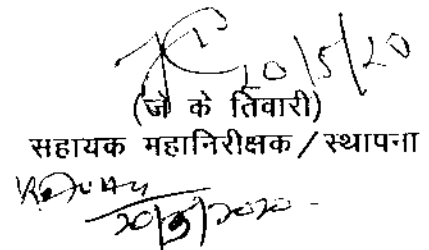 20/5/20
(जे के तिवारी)
सहायक महानिरीक्षक / स्थापना
20/5/2020